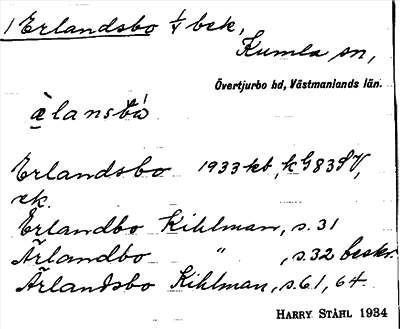 1 Erlandsbo ¼ bsk,
Kumla sn,
Övertjurbo hd, Västmanlands län.
ä̀lansbò
Erlandsbo 1933 kb, k G83 SV,
ek.
Erlandbo Kihlman, s. 31
Ärlandbo " , s. 32 beskr.
Ärlandsbo Kihlman, s. 61, 64
HARRY STÅHL 1934